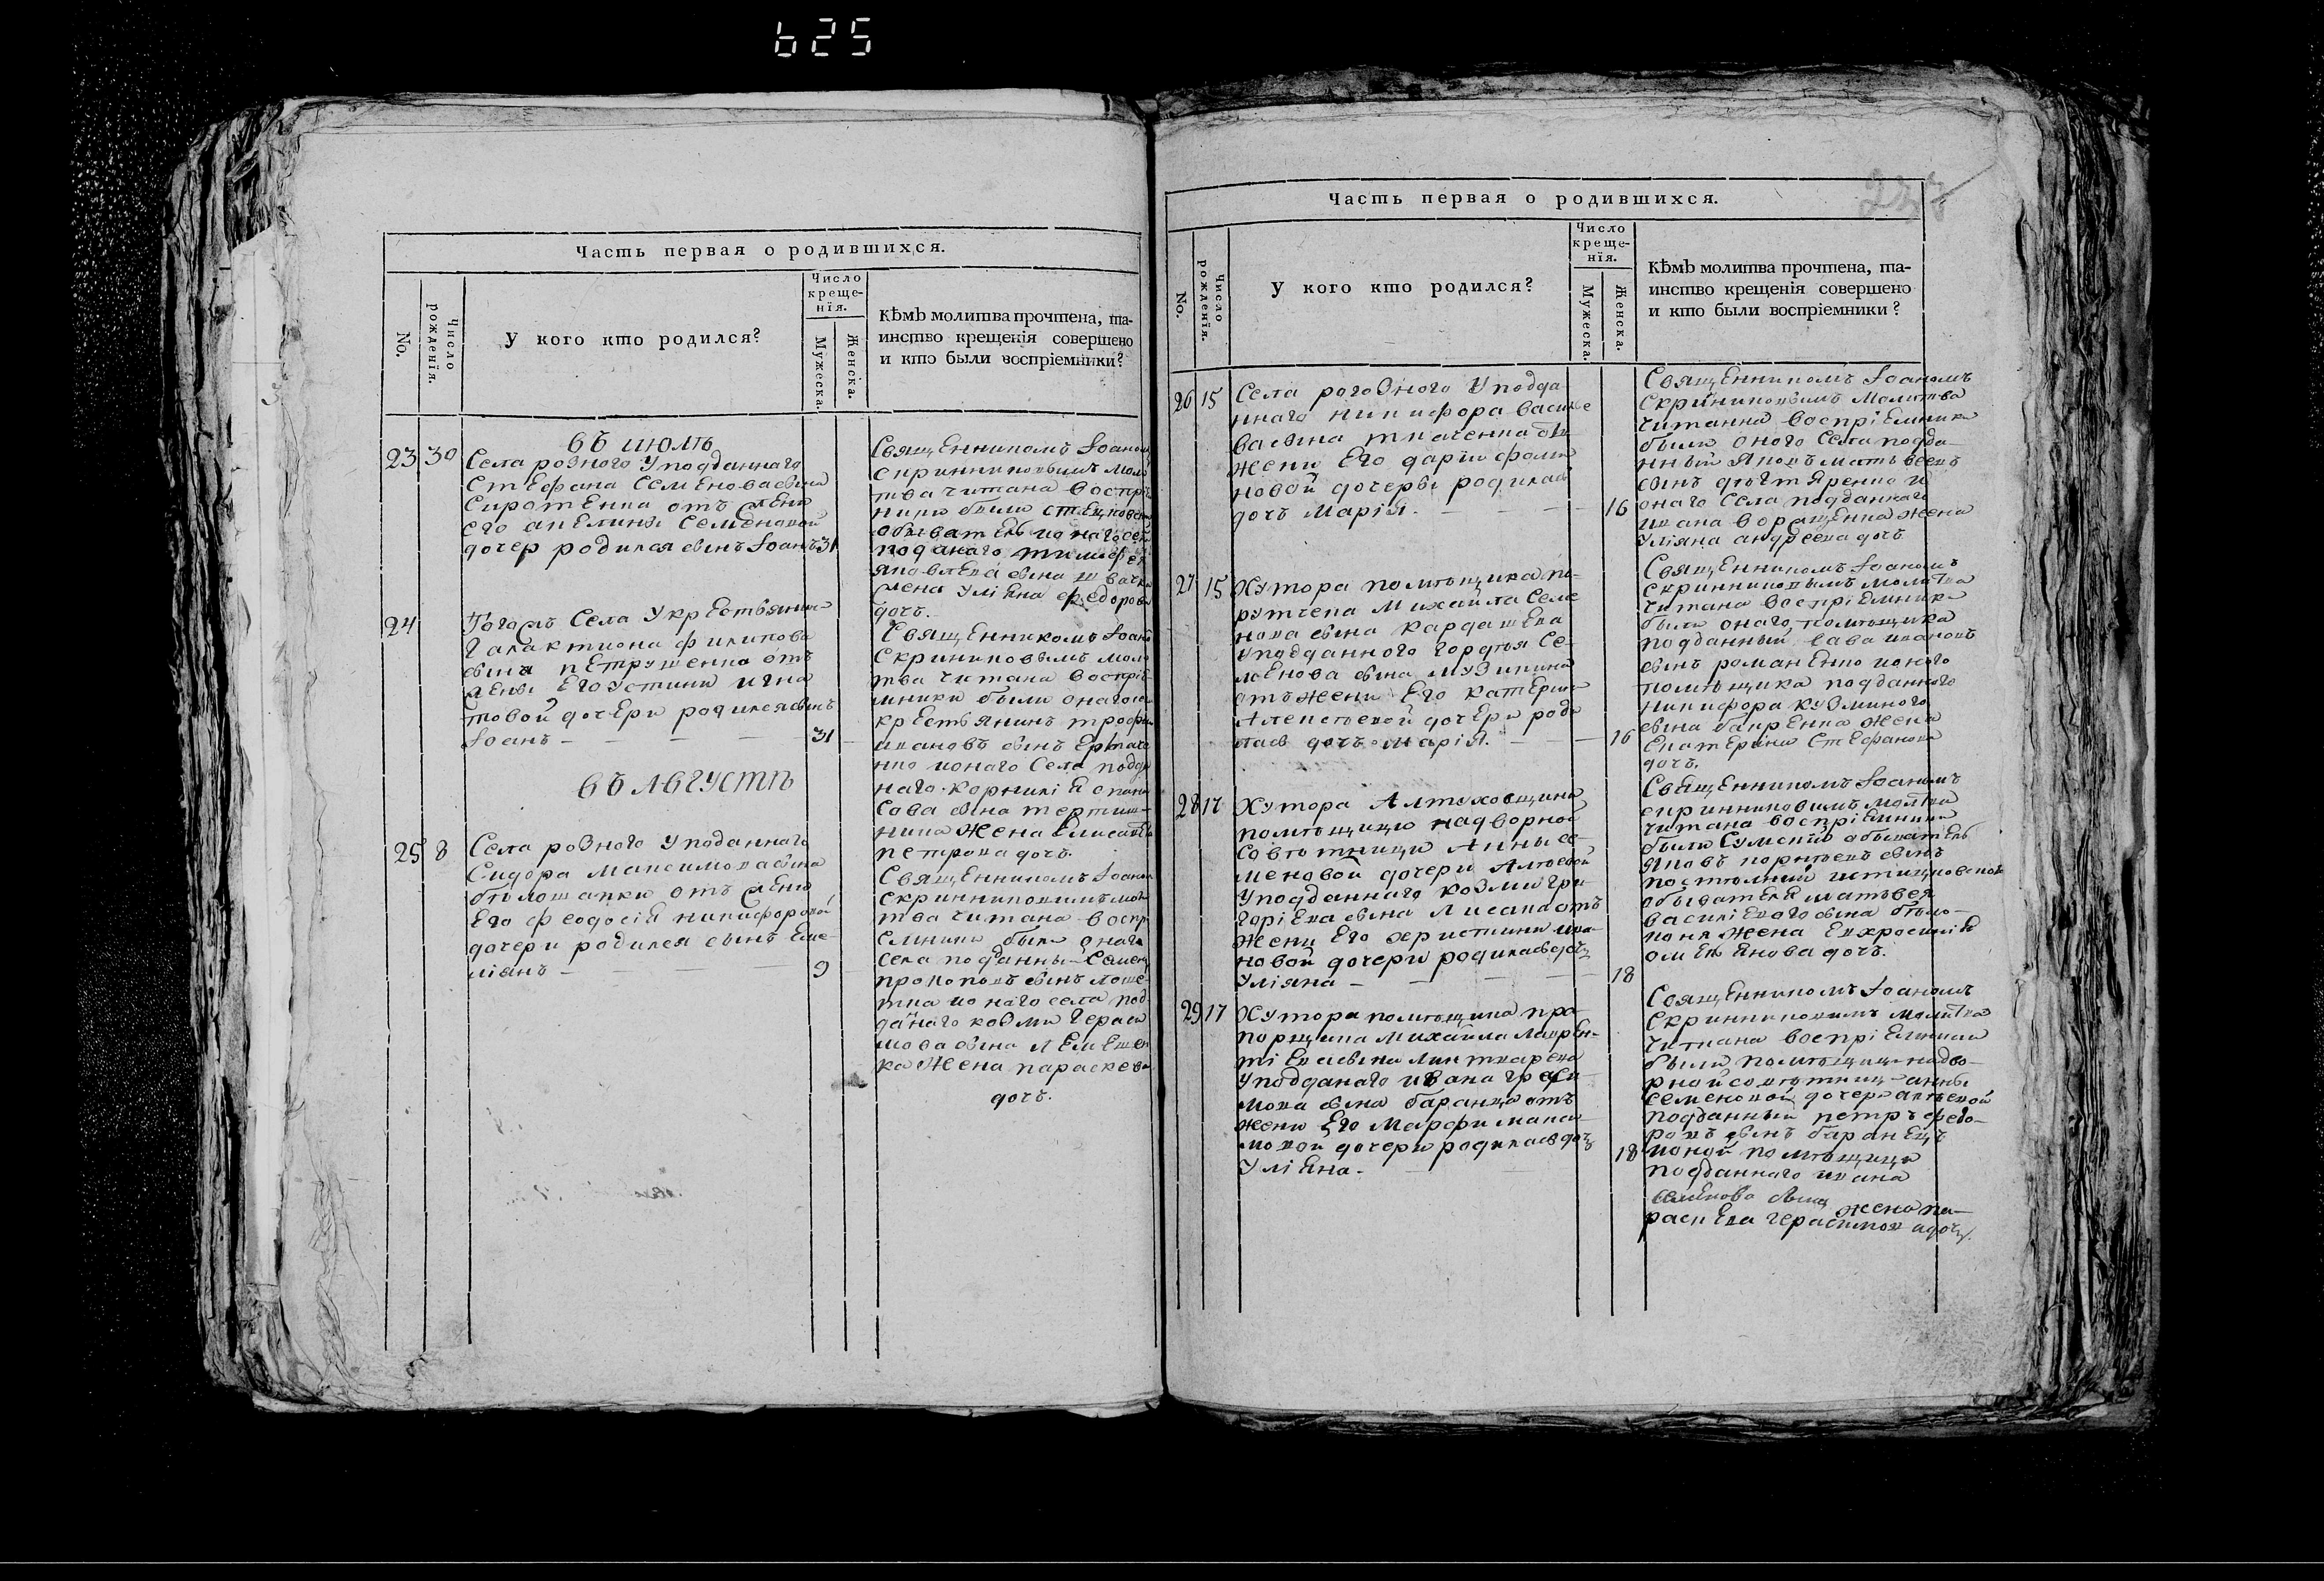 625
Часть первая о родившихся.
No.
Число рожденія.
У кого кто родился?
Число креще-
нія.
Мужеска.
Женска.
Кѣмъ молитва прочтена, та-
инство крещенія совершено
и кто были воспріемники?
въ июлѣ
23 30 Села ровного у подданнаго
Стефана Семенова сина
Сиротенка отъ жени
его ангелини Семеновой
дочер родился синъ Іоанъ 31
Священникомъ Іоаномъ
скринниковимъ моли
тва читана воспріе
ники были
обиватель ионаго села
поданаго тимофея
яковлева сина
жена Уліяна федорова
дочъ.
24 Тогожъ Села У крестянина
Галактиона филипова
сина петрушенка отъ
жени Его Устини игна
товой дочери родился синъ
Іоанъ — — — — 31
Священникомъ Іоано
Скринниковимъ моли
тва читана воспріе
мники были онаго се
крестьянинъ трофи
ивановъ синъ Ермаче
нко ионаго Села подда
наго корнилія
Сава сина
жена Елисавета
петрова дочъ.
въ Августѣ
25 8 Села ровного У поданнаго
Сидора Максимова сина
бѣлошапки отъ жени
Его феодосія никифоровой
дочери родился синъ Еме
ліянъ — 9
Священникомъ Іоаном
скринниковимъ мол
тва читана воспр
емники были онаго
села поданны Семен
прокоповъ синъ
ионаго села под
данаго козми Гераси
мова сина Лемеше
ка жена параскева
дочъ.
Часть первая о родившихся.
No.
Число рожденія.
У кого кто родился?
Число
креще-
нія.
Мужеска.
Женска.
Кѣмъ молитва прочтена, та-
инство крещенія совершено
и кто были воспріемники?
26 15 Села ровного У подда
ннаго никифора василе
ва сина ткаченка отъ
жени Его дарїи фоми
новой дочері родилась
дочъ Марія. — — — 16
Священникомъ Іоаномъ
скринниковимъ Молитва
читанна воспріемники
были оного Села подда-
нный Яковъ матвеевъ
синъ дегтяренко и
онаго Села подданнаго
ивана жена
Уліяна андреева дочъ
27 15 Хутора помѣщика по-
ручека Михайла Семе
нова сина Кардашева
У подданного гордѣя Се-
менова сина музикина
отъ жени Его катерини
Алексѣевой дочери роди
лась дочъ марія. — — 16
Священникомъ Іоаномъ
скринниковымъ молитва
читана воспріемники
были онаго помѣщика
подданный Сава ивановъ
синъ романенко ионого
помѣщика подданного
никифора кузминого
сина жена
Екатерина Стефанова
дочъ.
28 17 Хутора Алтуховщина
помѣщици надворной
Совѣтници Анны се-
меновой дочери Алѣевой
У подданнаго козми Гри-
горіева сина Лисака отъ
жени Его христини ива-
новой дочери родилась дочъ
Уліяна — — — 18
Священникомъ Іоаномъ
скринниковимъ молтва
читана воспріемники
были Сумский обыватель
Яковъ корнѣевъ синъ
обывателя матвея
василіевого сина бѣло-
коня жена Евхросинія
омелянова дочъ.
29 17 Хутора помѣщика пра-
порщика Михайла Лаврен-
тіева сина Линтварева
У подданаго ивана трофи-
мова сина баранца отъ
жени Его Марфи макси-
мовой дочери родилась дочъ
Уліяна. 18
Священникомъ Іоаномъ
Скринниковимъ молитва
читана воспріемники
были помѣщици надво-
рной совѣтници анны
семеновой дочери алѣевой
подданный петръ федо-
ровъ синъ баранецъ
ионой помѣщици
подданного ивана
сина жена па-
раскева герасимова дочъ.